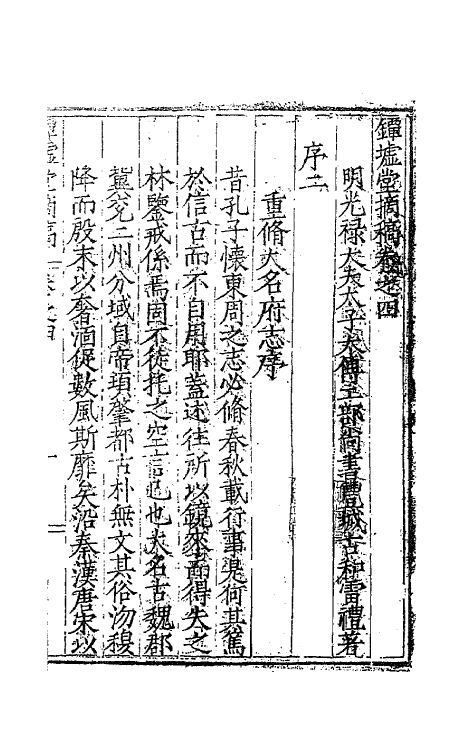 鐔墟堂摘稿卷之四
明光祿大夫太子太傅工部尚書豐城古和雷禮著
序二
重脩大名府志序
昔孔子懷東周之志必脩春秋載行事是何其篤
於信古而不自用耶蓋述往所以鏡來而得失之
林鑒戒係焉固不徒托之空言已也大名古魏郡
冀兖二州分域自帝頊肇都古朴無文其俗沕穆
降而殷末以奢湎從數風斯靡矣沿秦漢唐宋以
鐔墟堂摘稿 卷之四 一